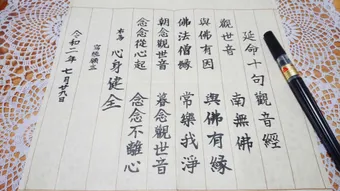 延命十句觀音經
觀世音 南無佛
與佛有因 與佛有緣
佛法僧緣 常樂我淨
朝念觀世音 暮念觀世音
念念從心起 念念不離心
為 心身健全
令和二年 七月廿九日